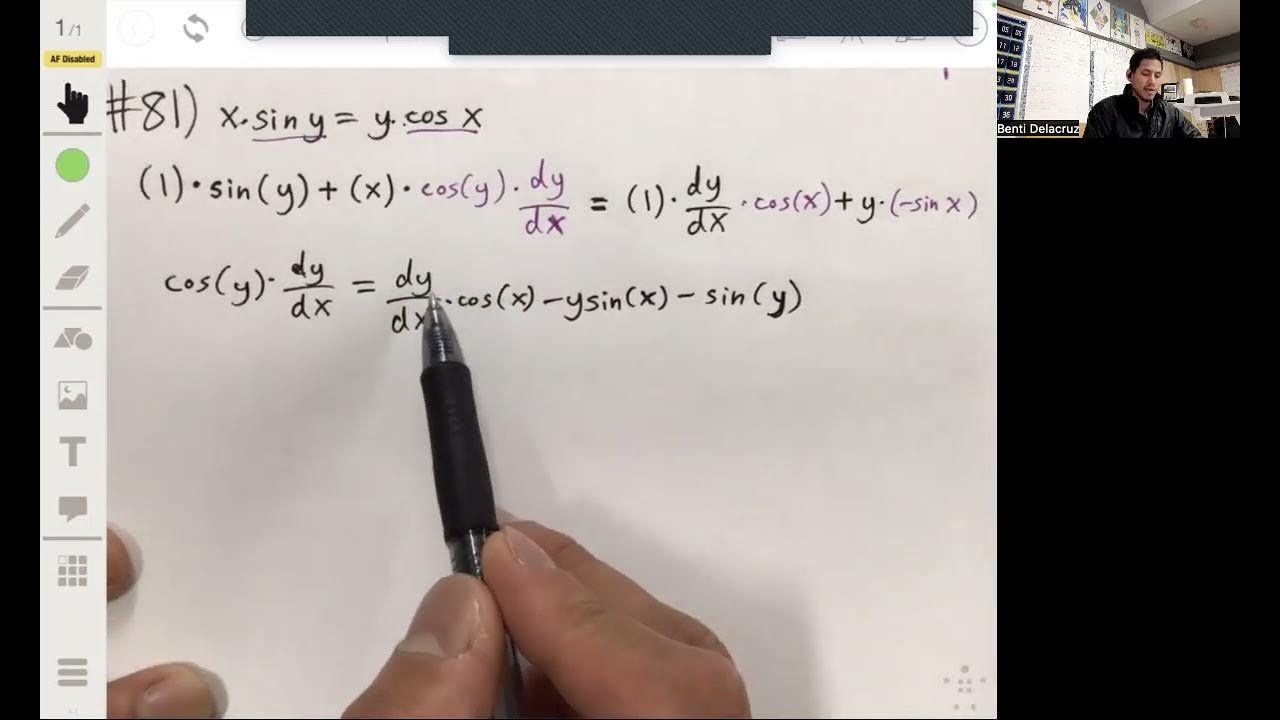 1/1
AF Disabled
#81) x·sin y = y·cos x
(1)·sin(y) + (x)·cos(y)·dy/dx = (1)·dy/dx·cos(x) + y·(-sin x)
cos(y)·dy/dx = dy/dx·cos(x) - ysin(x) - sin(y)
T
Benti Delacruz